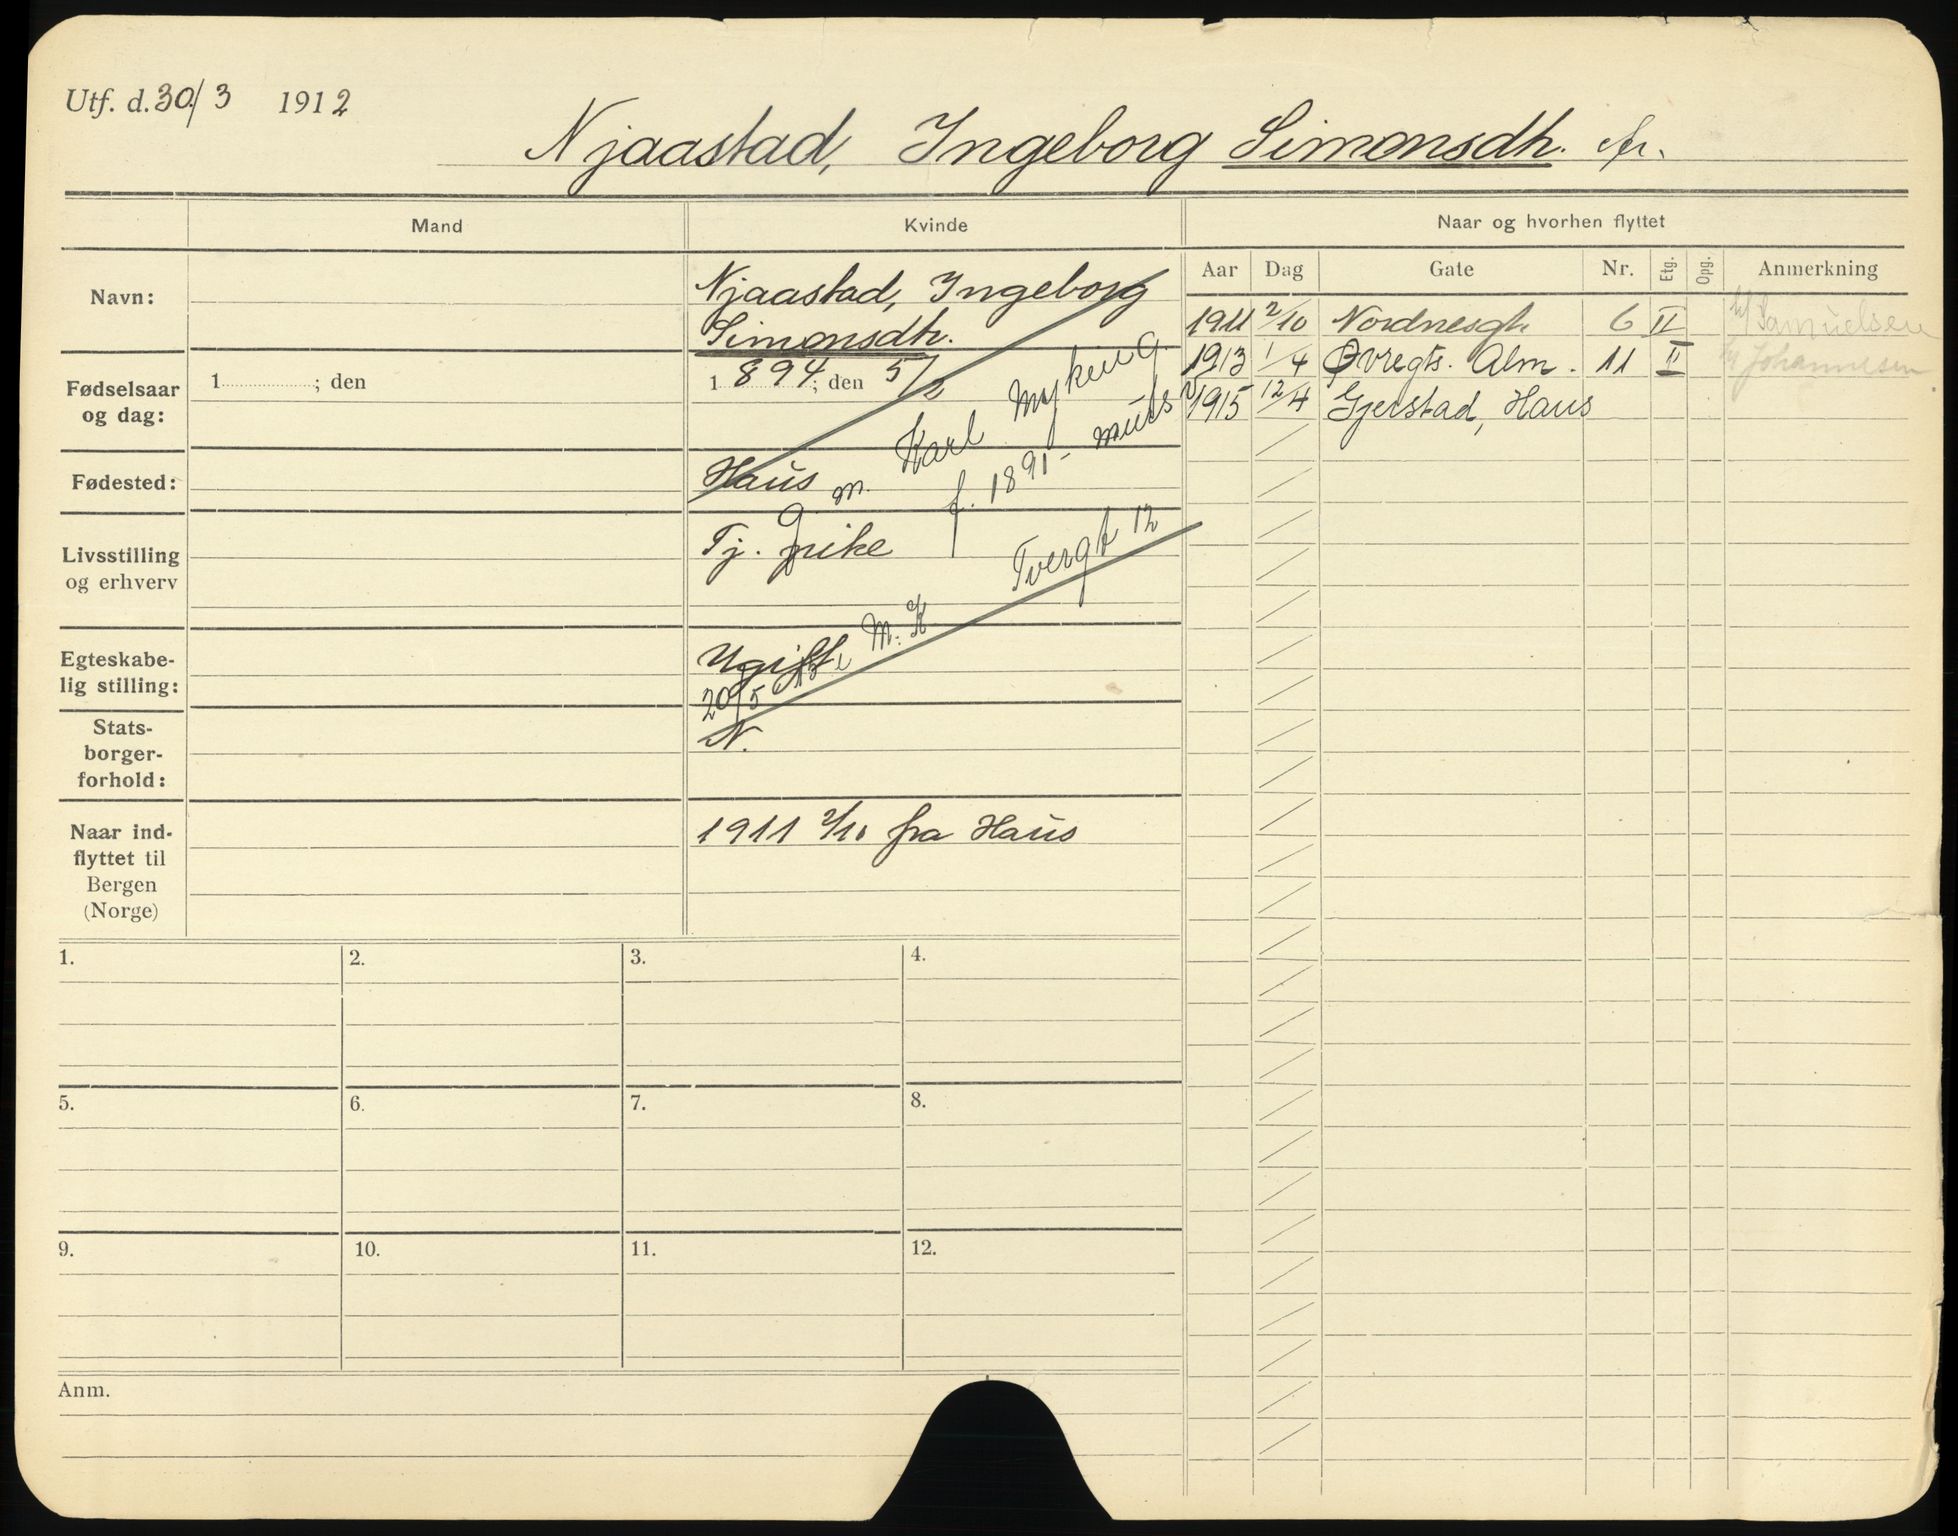 Utf. d. 30./3 1912
Njaastad, Ingeborg Simonsdh. fr.
Mand
Kvinde
Naar og hvorhen flyttet
Navn:
Njaastad, Ingeborg
Simonsdh.
Fødselsaar
og dag:
1 ; den
1 894; den 5/2
Fødested:
Haus
G. m. Karl Myking
f. 1891 -
Livsstilling
og erhverv
Tj. pike
Egteskabe-
lig stilling:
Ugift
20/5 M. K Tvergt 12
Stats-
borger-
forhold:
N.
Naar ind-
flyttet til
Bergen
(Norge)
1911 2/10 fra Haus
Aar Dag Gate Nr. Etg. Opg. Anmerkning
1911 2/10 Nordnesgt. 6 II Samuelsen
1913 1/4 Øvregts. Alm. 11 II Johannesen
1915 12/4 Gjerstad, Haus
1. 2. 3. 4.
5. 6. 7. 8.
9. 10. 11. 12.
Anm.